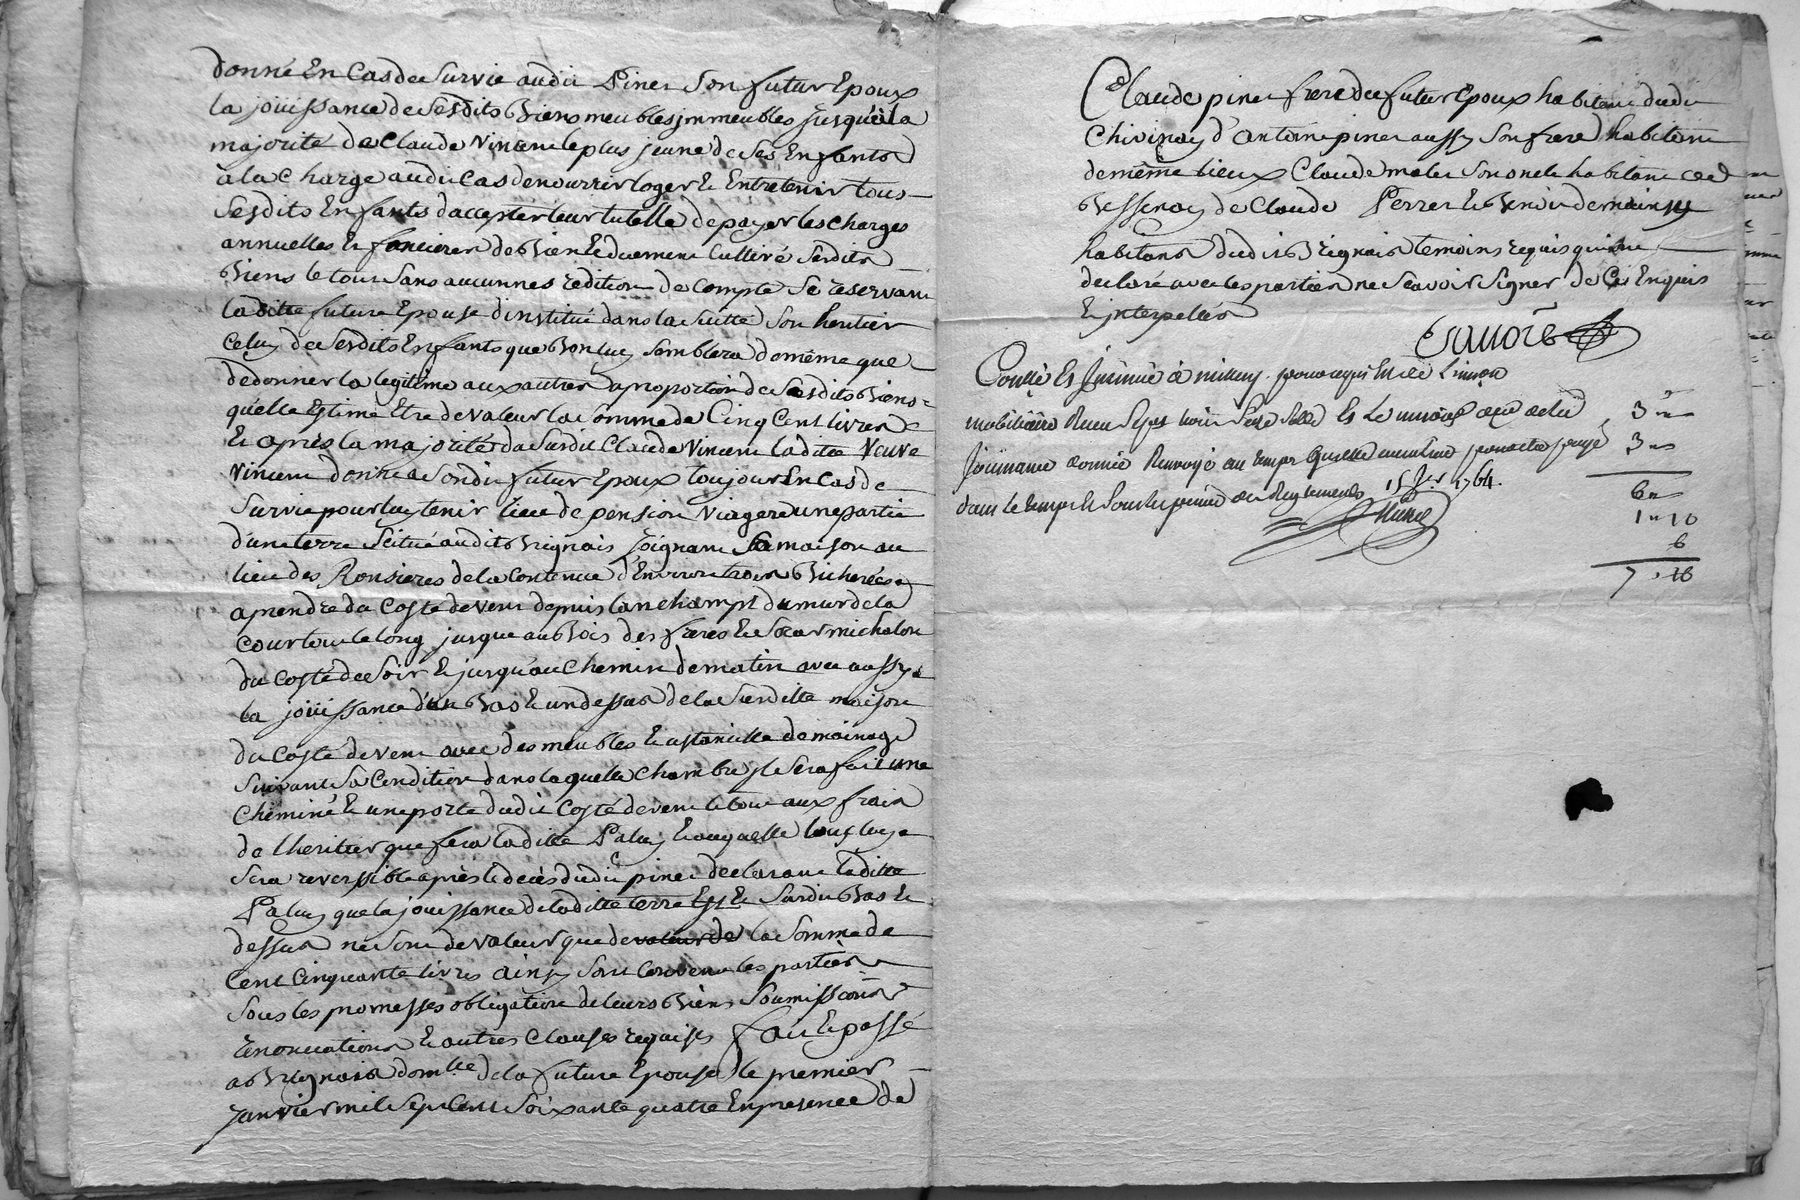 donné En Cas de Survie audit Pinet Son futur Epoux
la joüissance de Sesdits Biens meubles jmmeubles jusqu'à la
majorité de Claude Vincent le plus jeune de Ses Enfants
à la Charge audit Cas de nourrir loger Et Entretenir tous
Sesdits Enfants d'accepter leur tutelle de payer les charges
annuelles Et foncieres de Bien Et duement Cultivé Sesdits
Biens le tout Sans aucunnes redition de Compte Se reservant
ladite future Epouse d'institué dans la Suitte Son heritier
Celuy de Sesdits Enfants que Bon luy Semblera de même que
de donner la legitime aux autres a proportion de Sesdits Biens
qu'elle Estime Etre de valeur la Somme de Cinq Cent livres
Et après la majorité du Surdit Claude Vincent ladite Veuve
Vincent donne a Sondit futur Epoux toujour En Cas de
Survie pour luy tenir lieu de pension Viagere une partie
d'une terre Scitué audit Brignais Joignant Sa maison au
lieu des Ronsieres de la Contenue d'Environ trois Bicherées
a prendre du Costé de vent depuis l'anchampt du mur de la
Cour tout le long jusque au Bois des freres Et Sœur michalon
du Costé de Soir Et jusqu'au Chemin de matin avec aussy
la joüissance d'un Bas Et un dessus de la Surditte maison
du Costé de Vent avec des meubles Et ustancille de mainage
Suivant Sa Condition dans laquelle Chambre jl Sera fait une
Cheminé Et une porte dudit Costé de vent le tout aux frais
de l'heritier que fera ladite Paluy Et auquelle tout luy
Sera reversible après le decès dudit pinet declarant ladite
Paluy que la joüissance de ladite terre Est Et Surdit Bas Et
dessus ne Sont de valeur que de valeur de la Somme de
Cent Cinquante livres ainsy Sont Convenu les parties
Sous les promesses obligation de leurs Biens Soumissions
renonciations Et autres Clauses requises fait Et passé
a Brignais domlle de la future Epouse le premier
janvier mil Sept Cent Soixante quatre En presence de
Claude pinet frere du futur Epoux habitant dudit
Chivinay d'antoine pinet aussy Son frere habitant
de même Lieux Claude Son oncle habitant de
Bessenay de Claude Perret Et Benoit
habitans dudit Brignais temoins requis qui ont
declaré avec les parties ne Scavoir Signer de Ce Enquis
Et jnterpellés
Controllé Et Jnsinué à millery
mobiliaire
3 "
Joüissance donnée Renvoyé au temps
3 "
dans le temps Et Sous les peines des Reglements 15 Jer 1764.
6 "
1 " 10
6
7 . 16